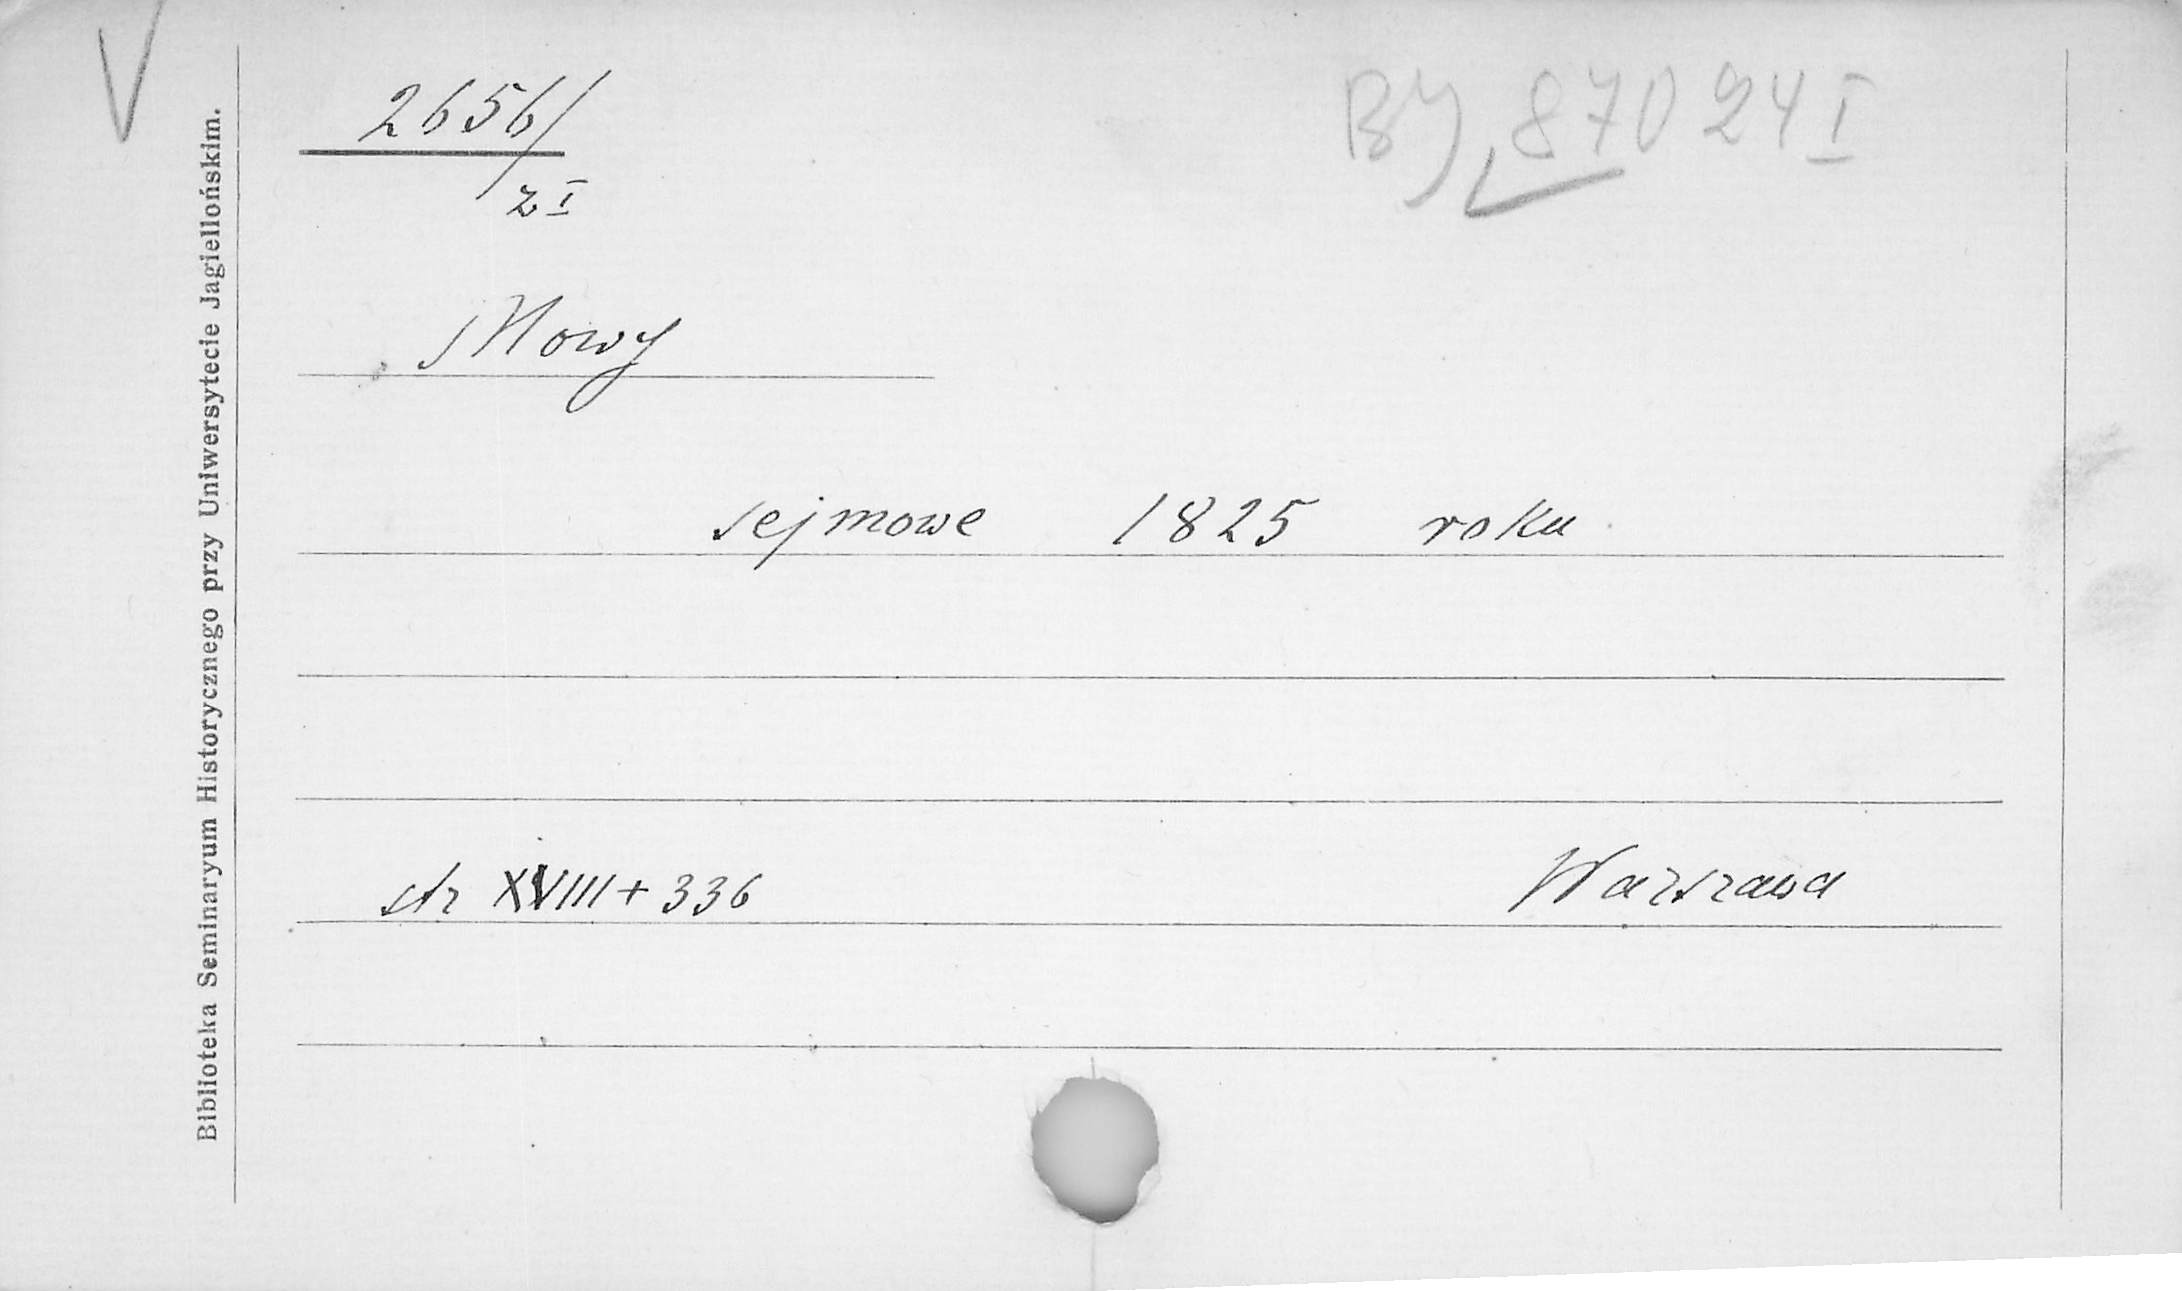 2656/
z I
BJ 87024 I
Mowy
sejmowe 1825 roku
str XVIII + 336 Warszawa
Biblioteka Seminaryum Historycznego przy Uniwersytecie Jagiellońskim.